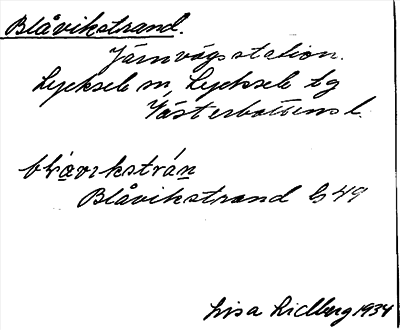 Blåvikstrand.
Järnvägsstation.
Lycksele sn, Lycksele tg
Västerbottens l.
blåvikstrán
Blåvikstrand G 49
Lisa Lidberg 1934